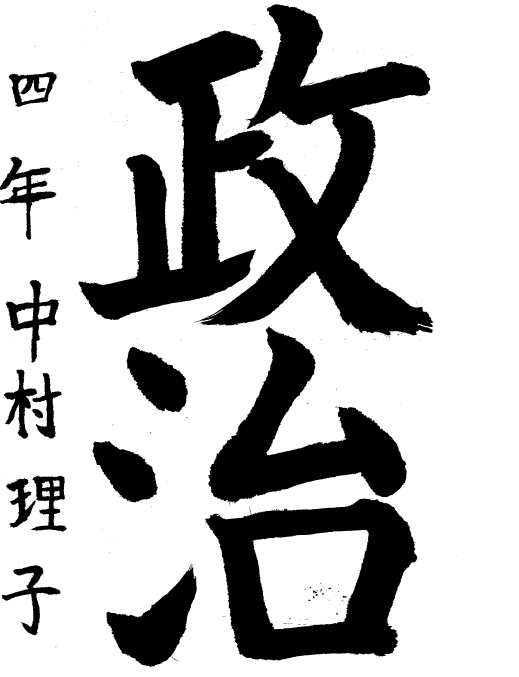 政治
四年 中村理子